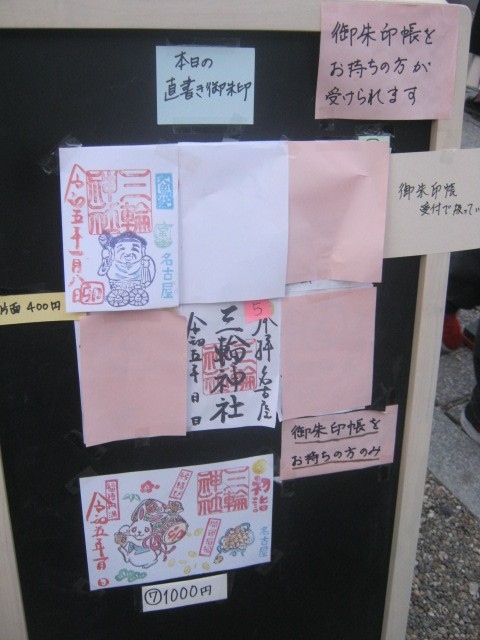 本日の
直書き御朱印
御朱印帳を
お持ちの方が
受けられます
御朱印帳
受付で扱ってい
三輪
神社
令和五年一月八日
名古屋
片面 400円
5
奉拝
名古屋
三輪神社
令和五年 日
御朱印帳を
お持ちの方のみ
初詣
三輪
神社
令和五年一月 日
名古屋
⑦1000円